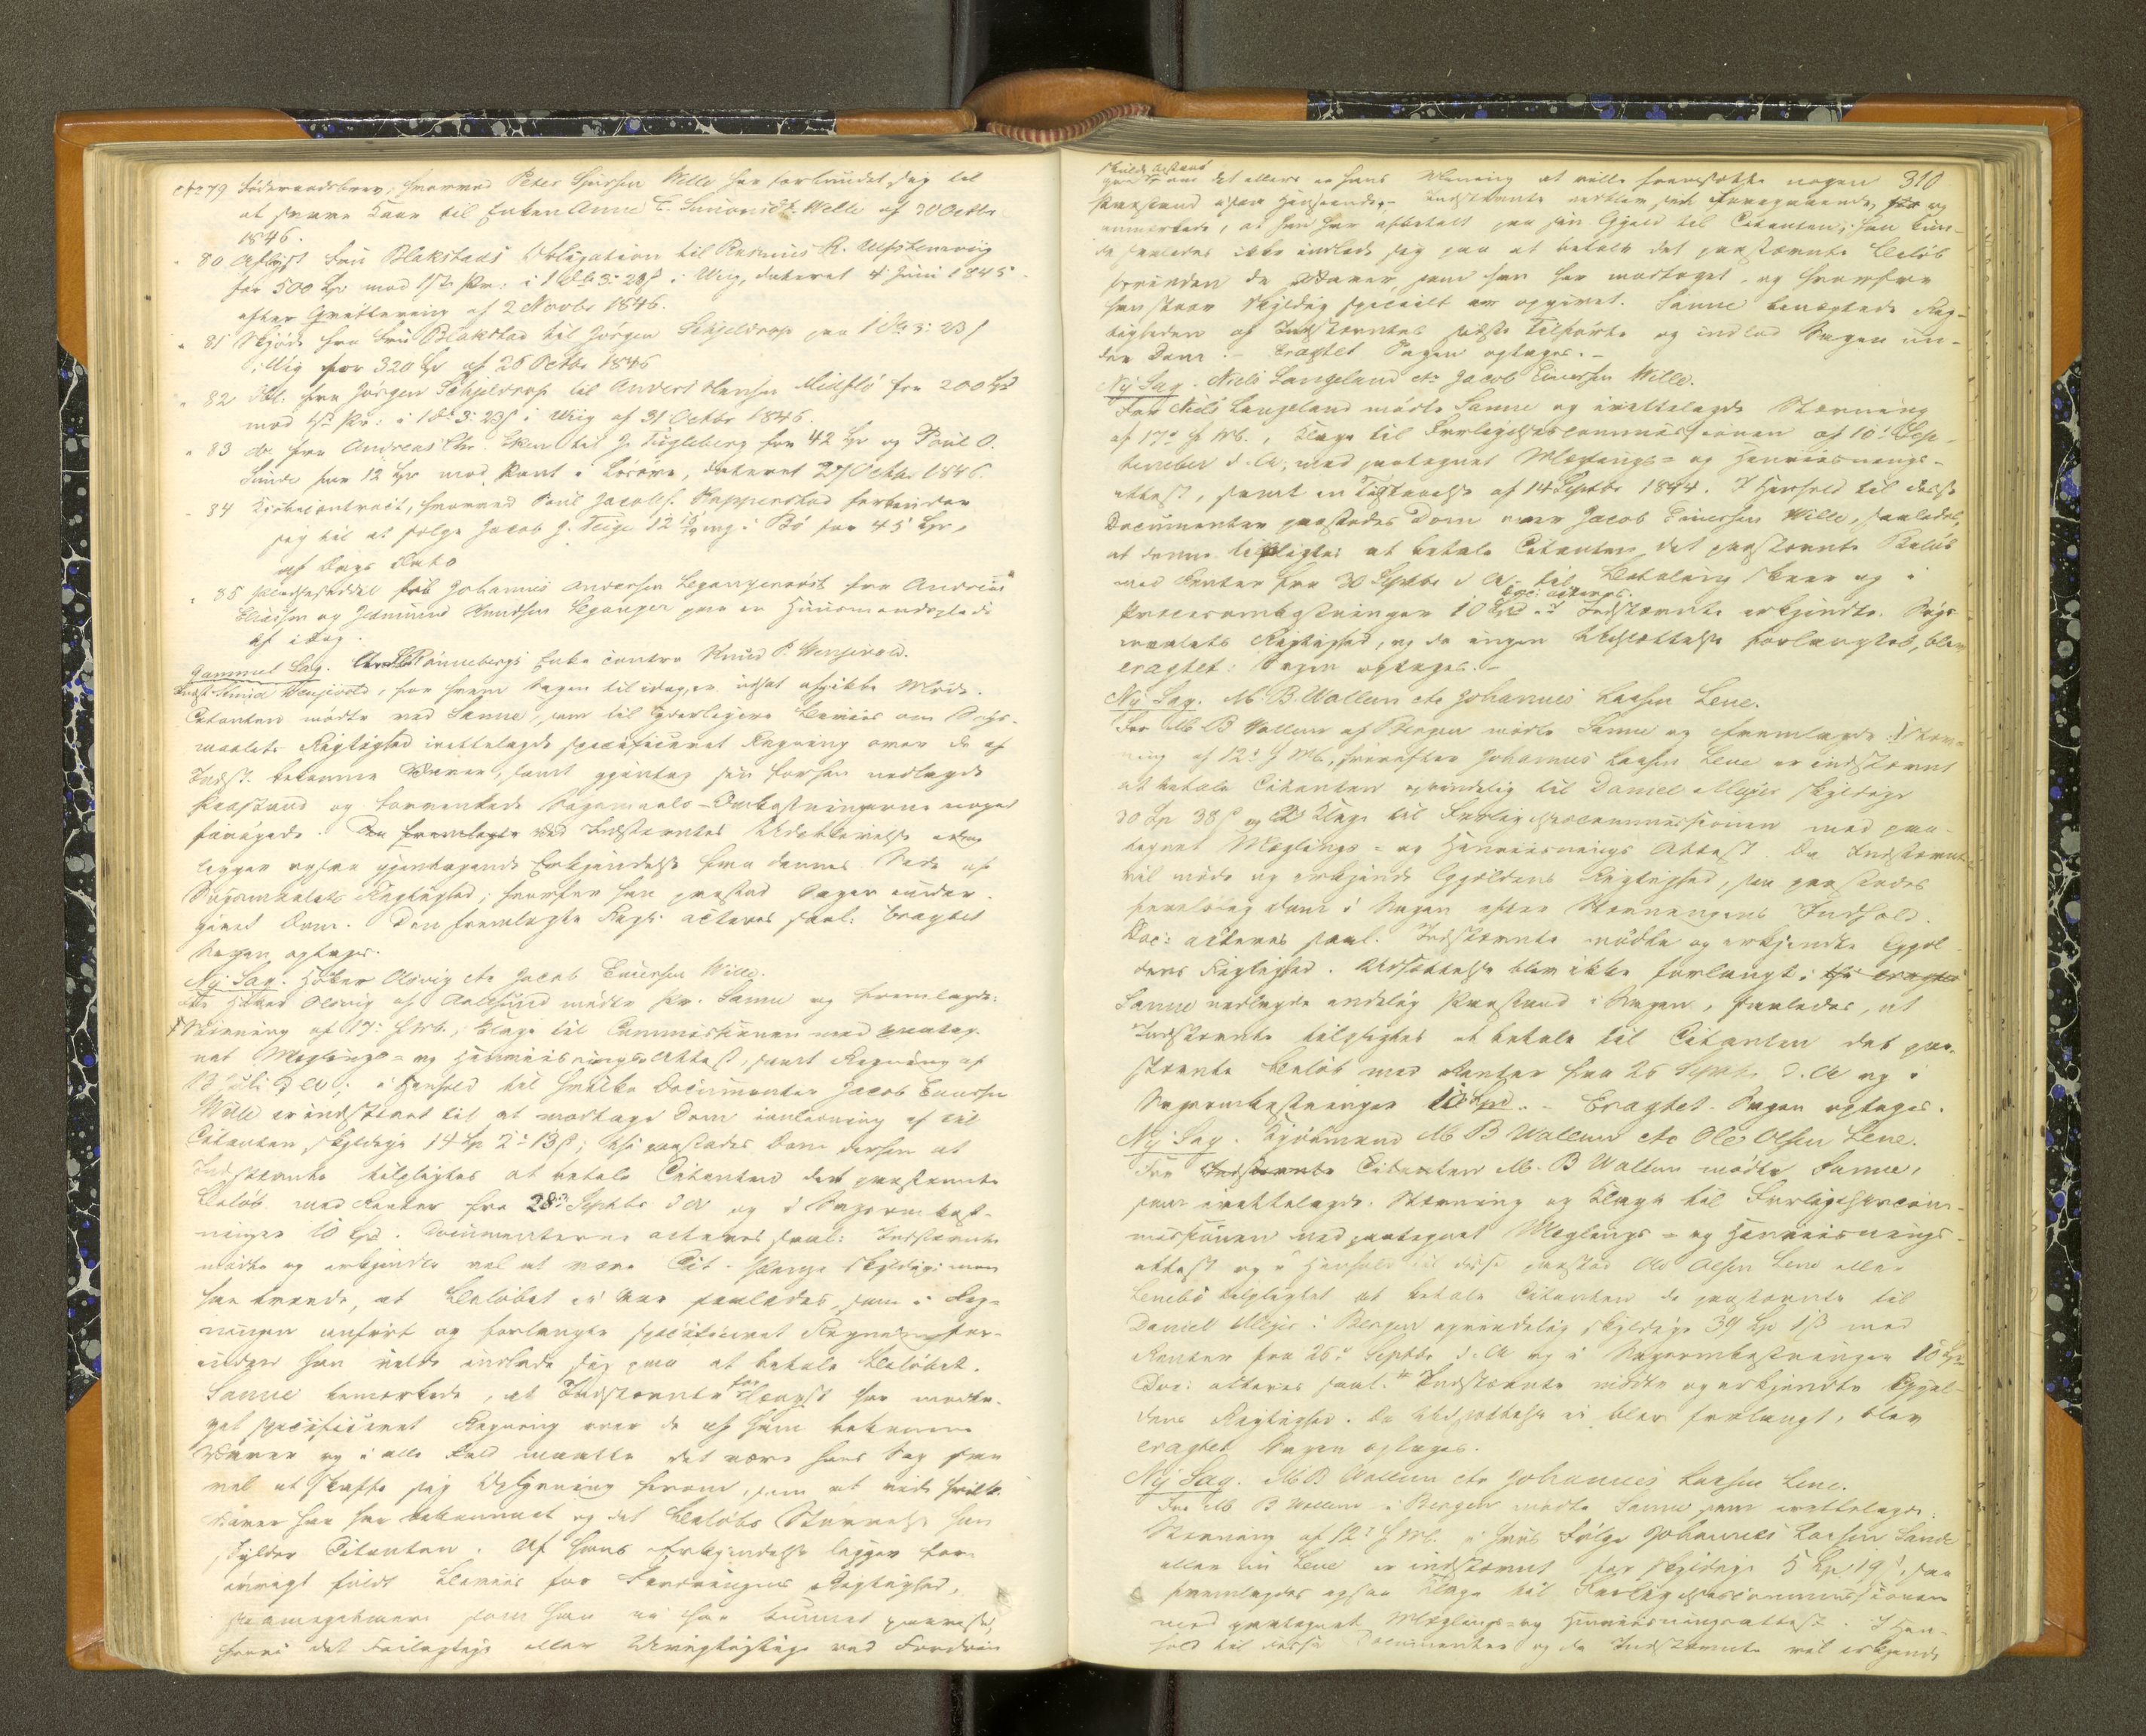 No 79 Føderaadsbrev, hvorved Peter Sjursen Welle har forbundet sig til
at svare Kaar til Enken Anne E. Welle af 30 Octbr
1846.
" 80 Aflyst Fru Blakstads Obligation til Rasmus R. Ulfstenvig
for 500 Spd mod 1ste Pr: i 1 Sk 3: 23 s i Wiig, dateret 4 Juni 1845
efter Qvittering af 2 Novbr 1846.
" 81 Skjøde fra Fru Blakstad til Jørgen Schjelderop paa 1 Sk 3: 23 s
i Wiig for 320 Spd af 26 Octbr 1846
" 82 Obl: fra Jørgen Schjelderop til Anders Hansen for 200 Spd
mod 1ste Pr: i 1 Sk 3: 23 s i Wiig af 31 Octbr 1846.
" 83 do fra Andreas til J. Fugleberg for 42 Spd og Poul O.
Sunde for 12 Spd mod Pant i Løsøre, dateret 27 Octbr 1846.
" 84 Kjøbecontract, hvorved Poul Jacobs. forbinder
sig til at sælge Jacob J. Teige 12 mg i Bø for 45 Spd,
af Dags Dato
" 85 Fæstesæddel til Johannes Andersen fra Andreas
Eliassen og Knudsen Leganger paa en Huusmandsplads
af idag.
Gammel Sag. Rønnebergs Enke contra Knud P. Wensivold.
Indst. Knud Wensivold, for hvem Sagen til idag er udsat afgik ikke Møde.
Citanten mødte ved Sanne, som til yderligere Beviis om Søgs-
maalets Rigtighed irettelagde specificeret Regning over de af
Indst. bekomne Varer, samt gjentog sin forhen nedlagde
Paastand og formeentede Sagsmaals-Omkostningerne noget
forøgede. Den fremlagte Ved Indstevntes Udeblivelse
ligger ogsaa gjentagende Erkjendelse fra dennes Side af
Søgsmaalets Rigtighed; hvorfor han paastod Sagen under-
givet Dom. Den fremlagte Regn: acteres saal: Eragtet
Sagen optages.
Ny Sag. Høker Olsvig ctr Jacob Einersen Wille.
For Høker Olsvig af Aalesund mødte Pr. Sanne og fremlagde:
Stevning af 17: f. M., Klage til Commissionen med paateg-
net Mæglings- og Henviisnings Attest, samt Regning af
13 Juli d A; i Henhold til hvilke Documenter Jacob Einersen
Wille er indstevnt til at modtage Dom i Anledning af til
Citanten skyldige 14 Sp 2: 13 s; thi paastodes Dom derhen at
Indstevnte tilpligtes at betale Citanten det paastevnte
Beløb med Renter fra 28: Septbr d A og i Sagsomkost-
ninger 10 Spd. Documenterne acteres saal: Indstevnte
mødte og erkjendte vel at være Cit. Penge skyldig men
han troede, at Beløbet ei var saaledes, som i Reg-
ningen anført og forlangte specificeret Regning for-
inden han vilde indlade sig paa at betale Beløbet.
Sanne bemærkede, at Indstevnte for længst har modta-
get specificeret Regning over de af ham bekomne
Varer og i alle Fald maatte det være hans Sag saa
vel at skaffe sig Oplysning herom, som at vide hvilke
Varer han har bekommet og det Beløbs Størrelse han
skylder Citanten. Af hans Erkjendelse ligger for-
øvrigt fuldt Beviis for Fordringens Rigtighed,
saameget mere som han ei har kunnet paavise,
hvori det Feilagtige eller Urigtigtige ved Fordrin

310
det ellers er hans Mening at ville fremsætte nogen
Paastand i saa Henseende. Indstevnte vedblev sit Foregaaende, og
anmærkede, at han har afbetalt paa sin Gjeld til Citanten; han kun-
de saaledes ikke indlade sig paa at betale det paastevnte Beløb
forinden de Varer som han har modtaget, og hvorfore
han staar skyldig specielt er opgivet. Sanne benægtede Rig-
tigheden af Indstevntes sidste Tilførte og indlod Sagen un-
der Dom. - Eragtet Sagen optages. -
Ny Sag. Niels Langeland ctr Jacob Einersen Wille.
For Niels Langeland mødte Sanne og irettelagde Stevning
af 17: f. M., Klage til Forligelsescommissionen af 10: Sep-
tember d. A, med paategnet Mæglings- og Henviisnings-
attest, samt en af 14 Septbr 1844. I Henhold til disse
Documenter paastodes Dom over Jacob Einersen Wille, saaledes,
at denne tilpligtes at betale Citanten det paastevnte Beløb
med Renter fra 30 Septbr d A. til Betaling skeer og i
Procesomkostninger 10 Spd Doc: acteres. Indstevnte erkjendte Søgs-
maalets Rigtighed, og da ingen Udsættelse forlangtes, blev
eragtet: Sagen optages. -
Ny Sag. M. B. Wallem ctr Johannes Larsen Lene.
For M B Wallem af Bergen mødte Sanne og fremlagde Stev-
ning af 12: f M., hvorefter Johannes Larsen Lene er indstevnt
at betale Citanten oprindelig til Daniel Meyer skyldige
30 Sp 38 s og Klage til Forligelsescommissionen med paa-
tegnet Mæglings- og Henviisnings Attest. Da Indstevnte
vil møde og erkjende Gjeldens Rigtighed, saa paastodes
foreløbig Dom i Sagen efter Stevningens Indhold.
Doc: acteres saal. Indstevnte mødte og erkjendte Gjel-
dens Rigtighed. Udsættelse blev ikke forlangt; thi eragtes
Sanne nedlagde endelig Paastand i Sagen, saaledes, at
Indstevnte tilpligtes at betale til Citanten det paa-
stevnte Beløb med Renter fra 26 Septbr d. A og i
Sagsomkostninger 10 Spd. - Eragtet Sagen optages.
Ny Sag. Kjøbmand M B Wallem ctr Ole Olsen Lene.
For Indstevnte Citanten M. B Wallem mødte Sanne,
som irettelagde Stevning og Klage til Forligelsescom-
missionen med paategnet Mæglings- og Henviisnings-
attest og i Henhold til disse paastod Ole Olsen Lene eller
Lenebø tilpligtet at betale Citanten de paastevnte til
Daniel Meyer i Bergen oprindelig skyldige 39 Sp 1 s med
Renter fra 26: Septbr d. A og i Sagsomkostninger 10 Spd
Doc: acteres saal. Indstevnte mødte og erkjendte Gjel-
dens Rigtighed. Da Udsættelse ei blev forlangt, blev
eragtet Sagen optages.
Ny Sag. M B Wallem ctr Johannes Larsen Lene.
For M B Wallem i Bergen mødte Sanne som irettelagde:
Stevning af 12: f M. i hvis Følge Johannes Larsen Sande
eller nu Lene er indstevnt for skyldige 5 Sp 19 s, saa
fremlagdes ogsaa Klage til Forligelsescommissionen
med paategnet Mæglings- og Henviisningsattest. I Hen-
hold til disse Documenter og da Indstevnte vil erkjende